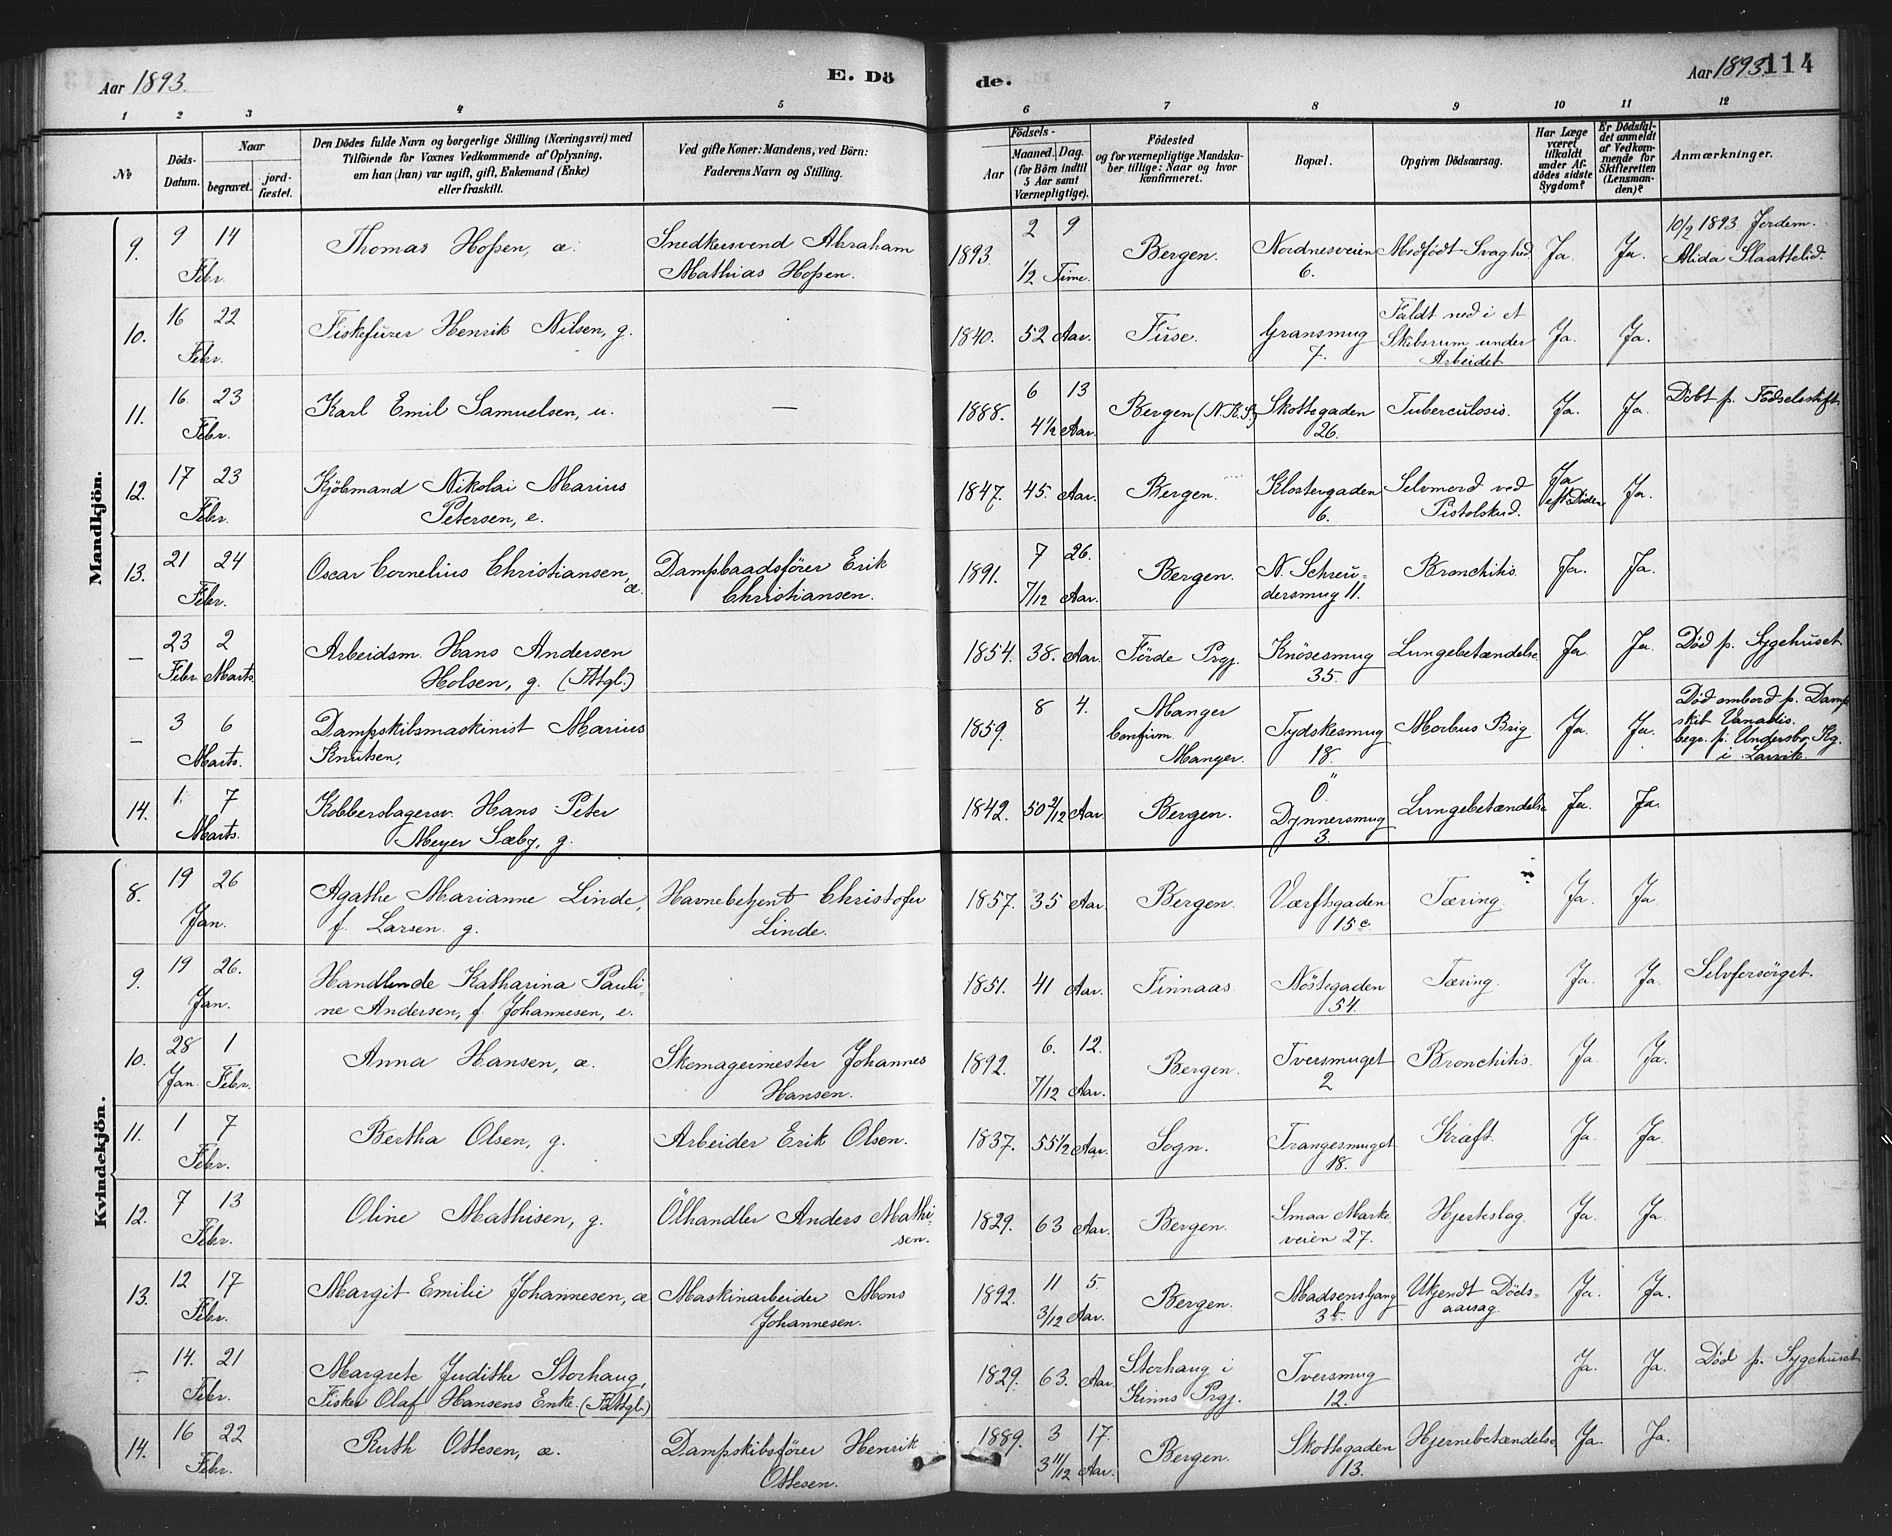 Aar 1893. E. Dö de. Aar 1893. 114
1 2 3 4 5 6 7 8 9 10 11 12
№ Döds-Datum. Naar begravet. jordfæstet. Den Dödes fulde Navn og borgerlige Stilling (Næringsvei) med Tilföiende for Voxnes Vedkommende af Oplysning, om han (hun) var ugift, gift, Enkemand (Enke) eller fraskilt. Ved gifte Koner: Mandens, ved Börn: Faderens Navn og Stilling. Födsels- Aar Maaned. Dag. (for Börn indtil 5 Aar samt Værnepligtige). Födested og for værnepligtige Mandskaber tillige: Naar og hvor konfirmeret. Bopæl. Opgiven Dödsaarsag. Har Læge været tilkaldt under Afdödes sidste Sygdom? Er Dödsfaldet anmeldt af Vedkommende for Skifteretten (Lensmanden)? Anmærkninger.
Mandkjön.
9. 9 14 Febr. Thomas Hopsen, æ. Snedkersvend Abraham Mathias Hopsen. 1893. 2 9 1/2 Time. Bergen. Nordnesveien 6. Medfödt Svaghed Ja. Ja. 10/2 1893 Jordem. Alida Slaattelid.
10. 16 22 Febr. Fiskefürer Henrik Nilsen, g. 1840. 52 Aar. Fuse. Gransmug 7. Faldt ned i et Skibsrum under Arbeidet Ja. Ja.
11. 16. 23 Febr. Karl Emil Samuelsen, u. — 1888. 6 13 4 1/2 Aar. Bergen (N.K.S) Skottegaden 26. Tuberculosis. Ja. Ja. Döbt p. Födselsstift.
12. 17 23 Febr. Kjöbmand Nikolai Marius Petersen, e. 1847. 45. Aar. Bergen. Klostergaden 6. Selvmord ved Pistolskud. Ja eft Döden Ja.
13. 21 24 Febr. Oscar Cornelius Christiansen, æ. Dampbaadsförer Erik Christiansen. 1891. 7 26. 7/12 Aar. Bergen. N. Schreudersmug 11. Bronchitis Ja. Ja.
— 23 Febr. 2 Marts Arbeidsm. Hans Andersen Holsen, g. (Fttgl.) 1854. 38. Aar. Förde Prgj. Knösesmug 35. Lungebetændelse Ja Ja. Död p. Sygehuset
— 3 6 Marts. Dampskibsmaskinist Marius Knutsen, 1859. 8 4. Manger Confirm Manger. Tydskesmug 18. Morbus Brig Ja Ja. Död ombord p. Dampskib Vanadis. begr. p. Undersbo Kg. i Larvik.
14. 1. 7 Marts. Kobberslagersv. Hans Peter Meyer Sæby, g. 1842. 50 2/12 Aar Bergen. Ö Dynnersmug 3. Lungebetændelse Ja. Ja.
Kvindekjön.
8. 19 26 Jan. Agathe Marianne Linde, f. Larsen. g. Havnebetjent Christofer Linde. 1857. 35 Aar Bergen. Værftsgaden 15 c. Tæring. Ja. Ja
9. 19 26. Jan. Handlende Katharina Pauline Andersen, f. Johannesen, e. 1851. 41 Aar. Finnaas. Nöstegaden 54. Tæring. Ja Ja. Selvforsörget.
10. 28 Jan. 1 Febr. Anna Hansen, æ. Skomagermester Johannes Hansen. 1892. 6. 12. 7/12 Aar. Bergen. Tversmuget 2 Bronchitis. Ja Ja.
11. 1 7 Febr. Bertha Olsen, g. Arbeider Erik Olsen. 1837. 55 1/2 Aar. Sogn. Trangesmuget 18. Kræft. Ja. Ja.
12. 7 13 Febr. Oline Mathisen, g. Ölhandler Anders Mathisen. 1829. 63 Aar. Bergen. Smaa Markeveien 27. Hjerteslag. Ja. Ja.
13. 12 17 Febr. Margit Emilie Johannesen, æ Maskinarbeider Mons Johannesen. 1892. 11 5. 3/12 Aar. Bergen. Madsensgang 3 b. Ukjendt Dödsaarsag. Ja. Ja.
— 14. 21 Febr. Margrete Judithe Storhaug, Fisker Olaf Hansens Enke. (Fattgl.) 1829. 63. Aar. Storhaug i Kinns Prgj. Tversmug 12. Ja. Ja. Död p. Sygehuset
14. 16 22 Febr. Ruth Ottesen, æ. Dampskibsförer Henrik Ottesen. 1889. 3 17. 3 11/12 Aar. Bergen. Skottegaden 13. Hjernebetændelse Ja. Ja.